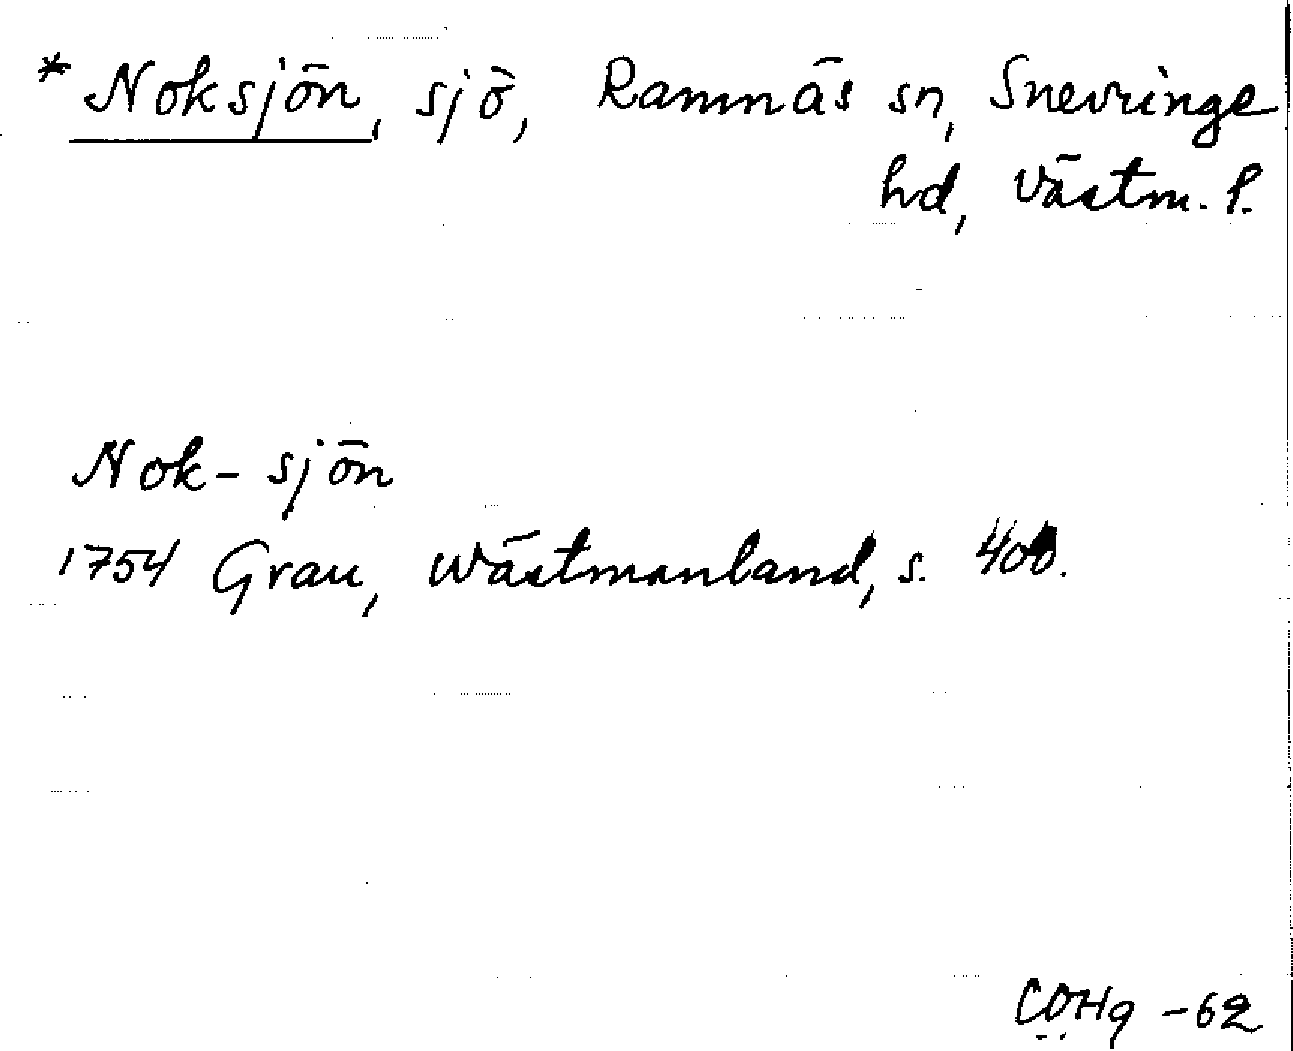 * Noksjön, sjö, Ramnäs sn, Snevringe
hd, Västm. l.
Nok-sjön
1754 Grau, Wästmanland, s.
COHg -62